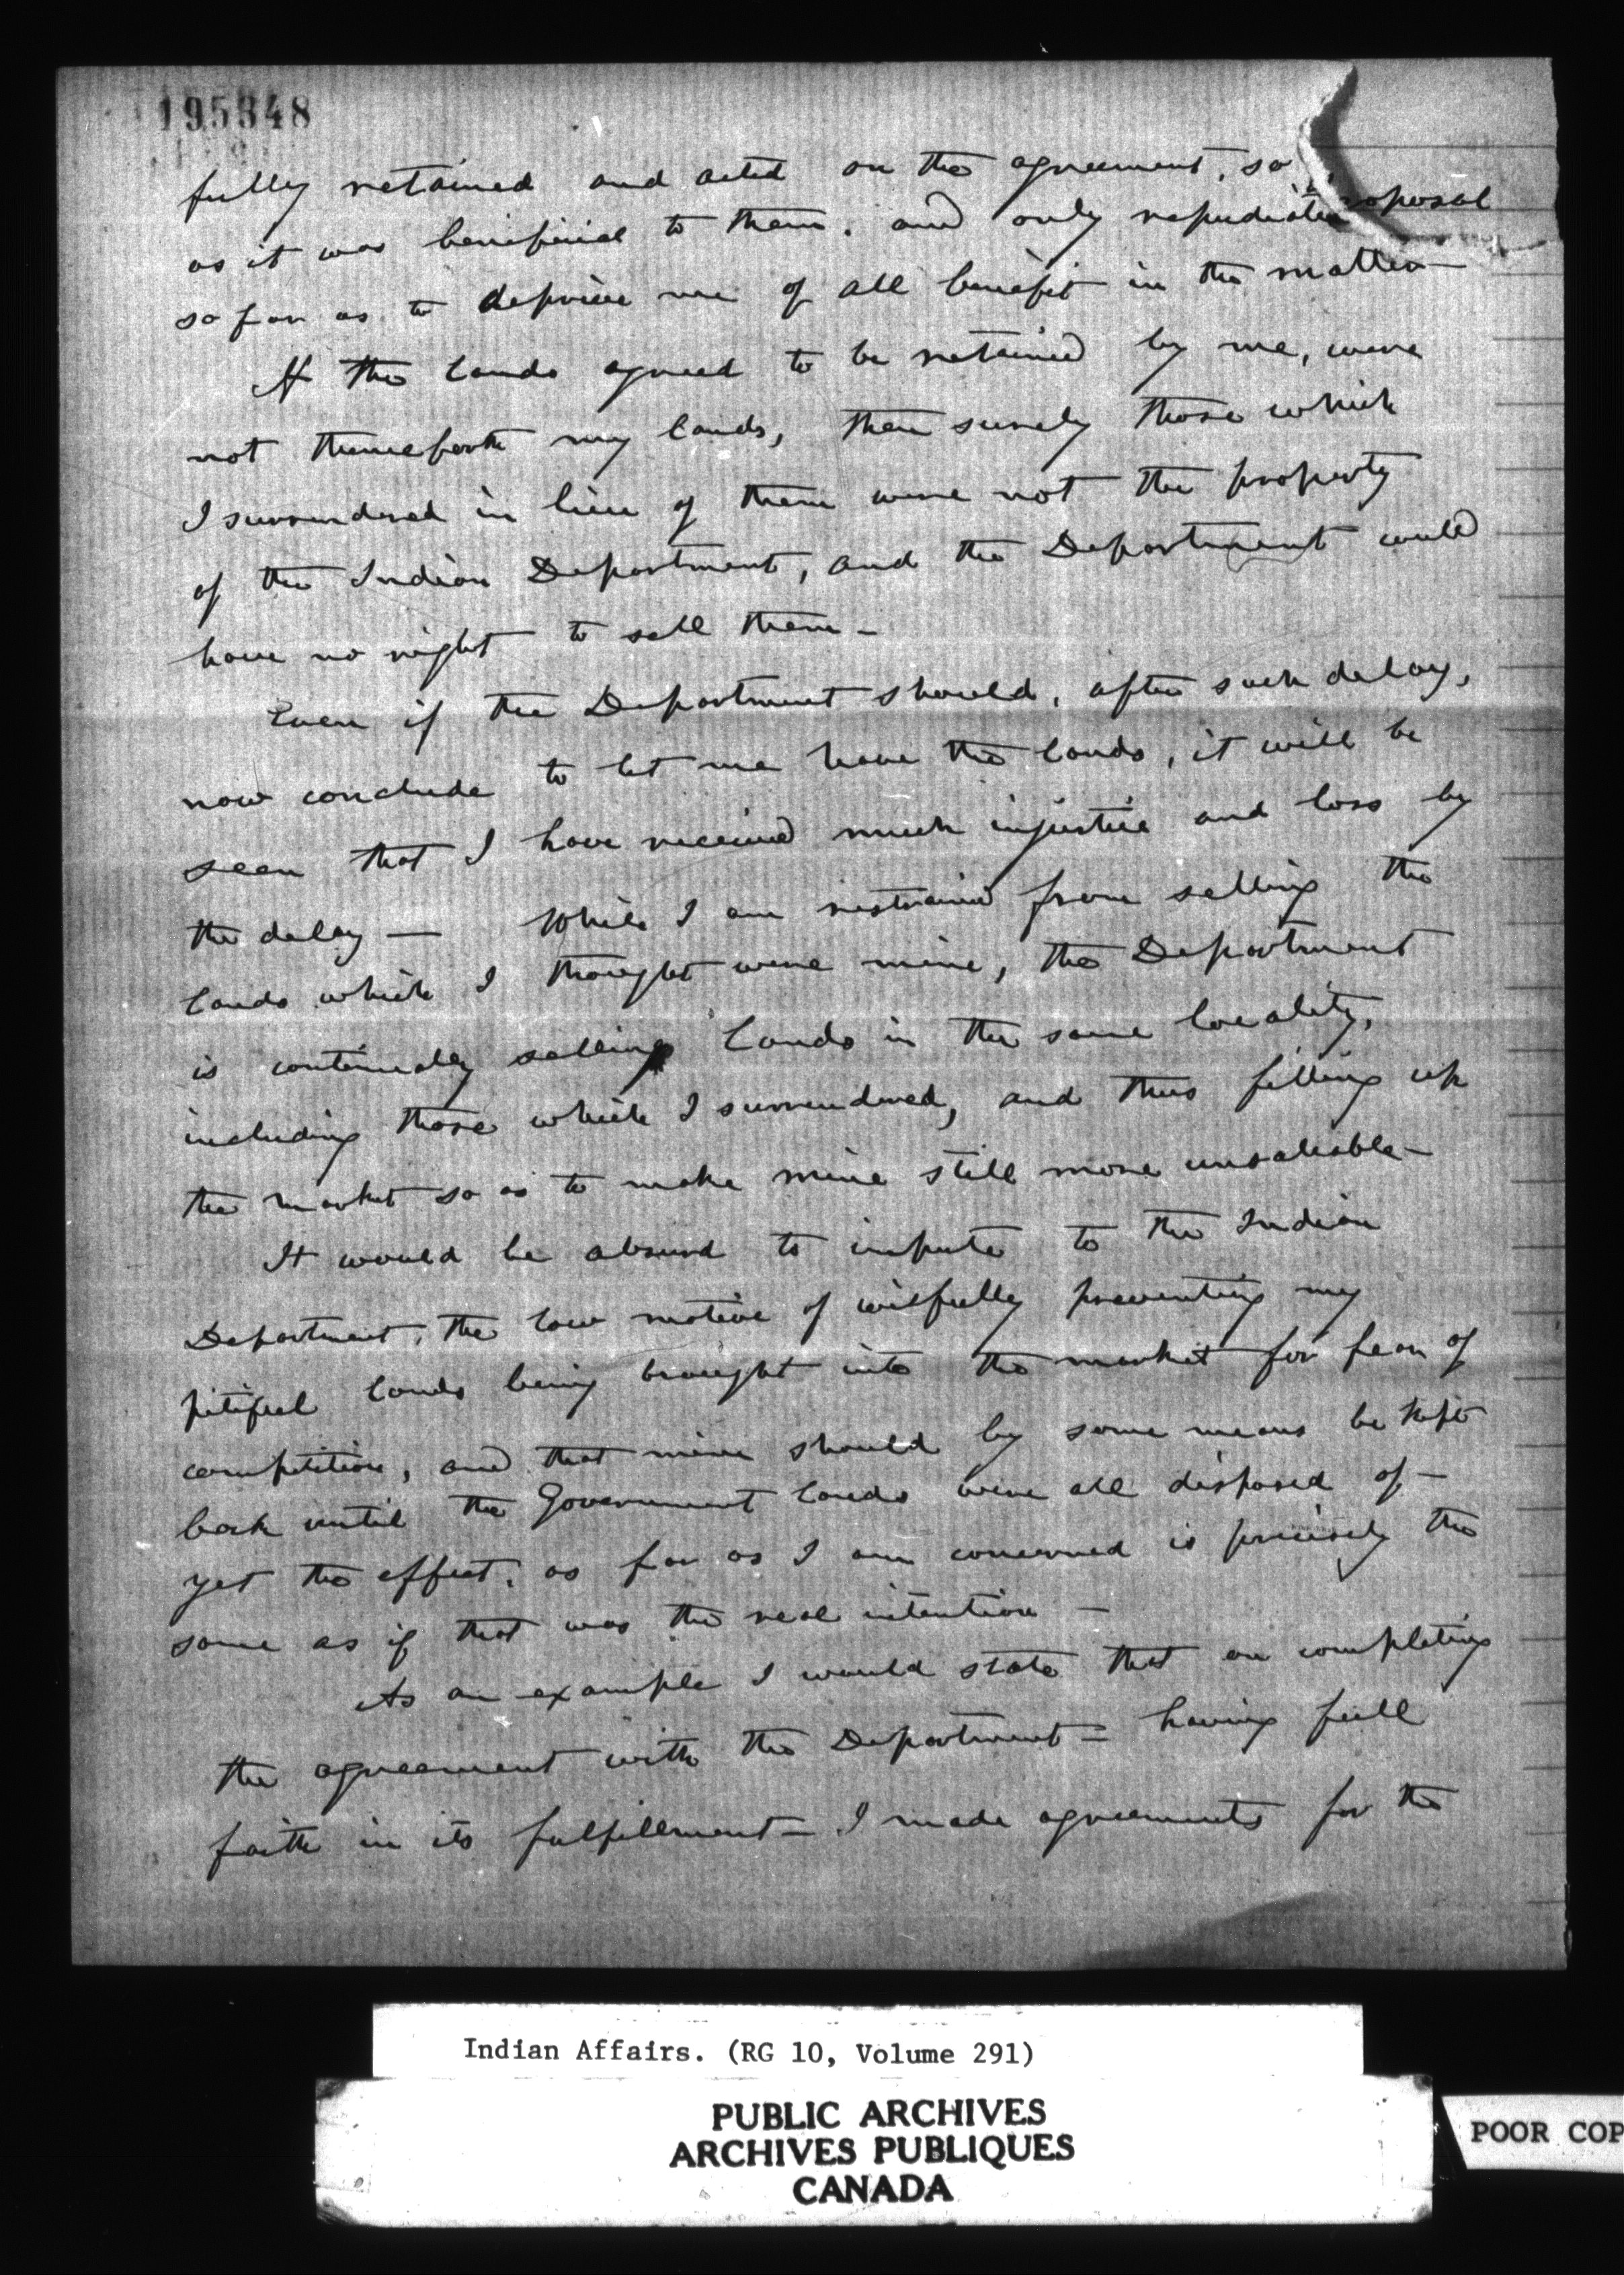 195348
fully retained and acted on the agreement, so
as it was beneficial to them, and only repudiate
roposal
so far as to deprive me of all benefit in the matter
If the lands agreed to be retained by me, were
not thenceforth my lands, then surely those which
I surrendered in lieu of them were not the property
of the Indian Department, and the Department could
have no right to sell them -
Even if the Department should, after such delay,
now conclude to let me have the lands, it will be
seen that I have received much injustice and loss by
the delay — While I am restrained from selling the
lands which I thought were mine, the Department
is continually selling lands in the same locality,
including those which I surrendered, and thus filling up
the market so as to make mine still more unsaleable -
It would be absurd to impute to the Indian
Department, the low motive of wilfully preventing my
pitiful lands being brought into the market for fear of
competition, and that mine should by some means be kept
back until the Government lands were all disposed of -
yet the effect, as far as I am concerned is precisely the
same as if that was the real intention -
As an example I would state that on completing
the agreement with the Department = having full
faith in its fulfillment - I made agreements for the
Indian Affairs. (RG 10, Volume 291)
PUBLIC ARCHIVES
ARCHIVES PUBLIQUES
CANADA
POOR COP